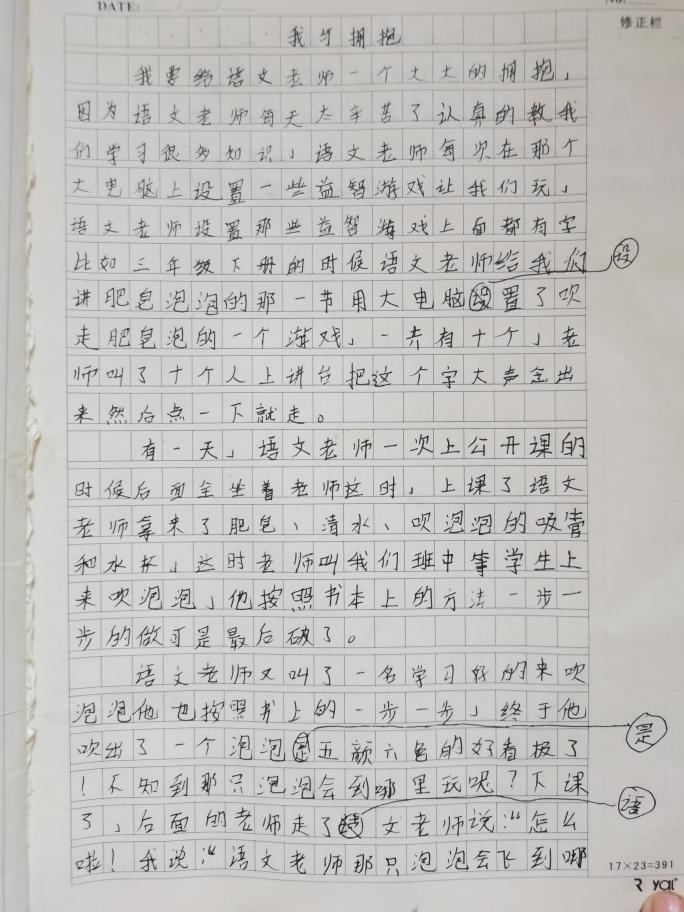 DATE: / /
NO.
修正栏
我与拥抱
我要给语文老师一个大大的拥抱，
因为语文老师每天太辛苦了认真的教我
们学习很多知识，语文老师每次在那个
大电脑上设置一些益智游戏让我们玩，
语文老师设置那些益智游戏上面都有字
比如三年级下册的时候语文老师给我们
设
讲肥皂泡泡的那一节用大电脑置了吹
走肥皂泡的一个游戏，一共有十个，老
师叫了十个人上讲台把这个字大声念出
来然后点一下就走。
有一天，语文老师一次上公开课的
时候后面全坐着老师这时，上课了语文
老师拿来了肥皂、清水、吹泡泡的吸管
和水杯，这时老师叫我们班中等学生上
来吹泡泡，他按照书本上的方法一步一
步的做可是最后破了。
语文老师又叫了一名学习好的来吹
泡泡他也按照书上的一步一步，终于他
吹出了一个泡泡五颜六色的好看极了
是
！不知到那只泡泡会到哪里玩呢？下课
了，后面的老师走了文老师说：“怎么
语
啦！我说：“语文老师那只泡泡会飞到哪
17×23=391
Royal